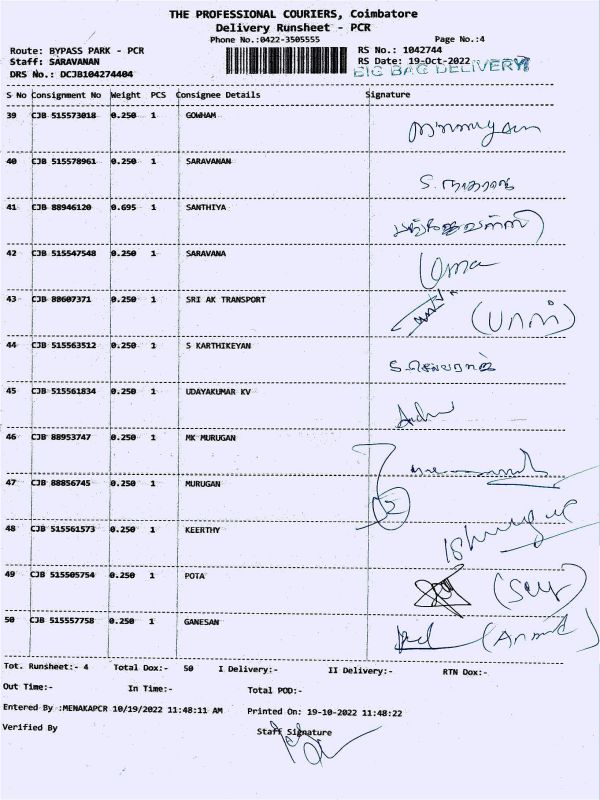 THE PROFESSIONAL COURIERS, Coimbatore
Delivery Runsheet - PCR
Phone No.:0422-3505555
Page No.:4
Route: BYPASS PARK - PCR
RS No.: 1042744
Staff: SARAVANAN
RS Date: 19-Oct-2022
DRS No.: DCJB104274404
BIG BAG DELIVERY
S No Consignment No Weight PCS Consignee Details Signature
39 CJB 515573018 0.250 1 GOWHAM
40 CJB 515578961 0.250 1 SARAVANAN
41 CJB 88946120 0.695 1 SANTHIYA
42 CJB 515547548 0.250 1 SARAVANA Uma
43 CJB 88607371 0.250 1 SRI AK TRANSPORT
44 CJB 515563512 0.250 1 S KARTHIKEYAN
45 CJB 515561834 0.250 1 UDAYAKUMAR KV
46 CJB 88953747 0.250 1 MK MURUGAN
47 CJB 88856745 0.250 1 MURUGAN 2
48 CJB 515561573 0.250 1 KEERTHY
49 CJB 515505754 0.250 1 POTA
50 CJB 515557758 0.250 1 GANESAN
Tot. Runsheet:- 4 Total Dox:- 50 I Delivery:- II Delivery:- RTN Dox:-
Out Time:- In Time:- Total POD:-
Entered By :MENAKAPCR 10/19/2022 11:48:11 AM Printed On: 19-10-2022 11:48:22
Verified By Staff Signature